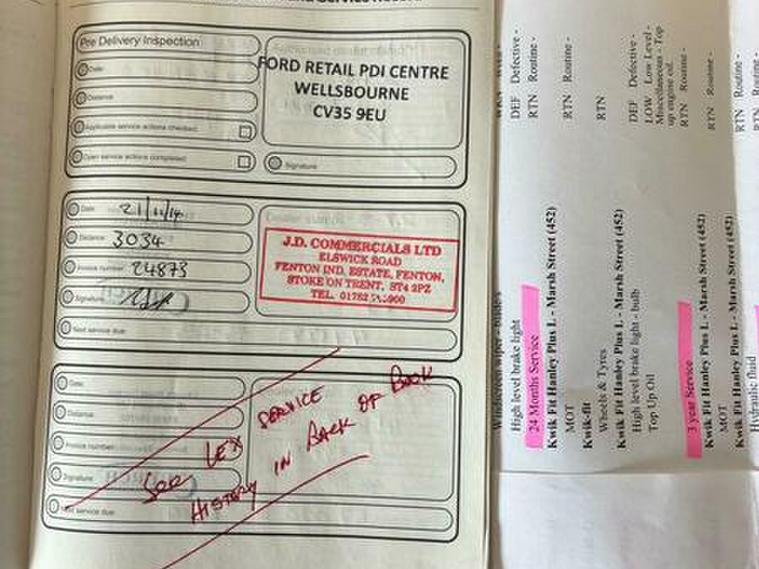 Pre Delivery Inspection
Date:
Distance:
Applicable service actions checked:
Open service actions completed:
FORD RETAIL PDI CENTRE
WELLSBOURNE
CV35 9EU
Signature
Date:
Distance: 3034
Invoice number: 24873
Signature:
Next service due:
J.D. COMMERCIALS LTD
ELSWICK ROAD
FENTON IND. ESTATE, FENTON,
STOKE ON TRENT, ST4 2PZ
TEL. 01782
Date:
Distance:
Invoice number:
Signature:
Next service due:
SEE LEX SERVICE
HISTORY IN BACK OF BOOK
DEF Defective -
High level brake light
RTN Routine -
24 Months Service
Kwik Fit Hanley Plus L - Marsh Street (452)
RTN Routine -
MOT
Kwik-fit
RTN
Wheels & Tyres
Kwik Fit Hanley Plus L - Marsh Street (452)
DEF Defective -
High level brake light - bulb
LOW Low Level -
Top Up Oil
Miscellaneous - Top
up engine oil.
RTN Routine -
3 year Service
Kwik Fit Hanley Plus L - Marsh Street (452)
RTN Routine -
MOT
Kwik Fit Hanley Plus L - Marsh Street (452)
RTN Routine -
Hydraulic fluid